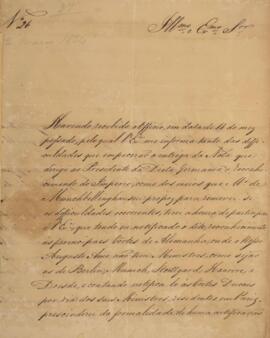 Nº 24
Illmo e Exmo Snr
Havendo recebido o Officio, em data de 14 do mez
passado, pelo qual V. Exª me informa tanto das diffi-
culdades que impecerão a entrega da Nota que
dirigio ao Presidente da Dieta Germanica,
cimento do Imperio, como dos meios que Mr. de
Munchbellinghausen propoz para remover
as difficuldades occurrentes, tive a honra de participar
a V. Exª, que tendo eu notificado o dito reconhecimento
ás Cortes de Alemanha, onde o Nosso
Augusto Amo não tem Ministros, como sejão
as de Berlin, Munich, Stuttgard, Hanover, e
Dresde, e contando notifica-lo ás Cortes Ducaes
por via dos seus Ministros, residentes em
prescinderei da formalidade de huma notificação